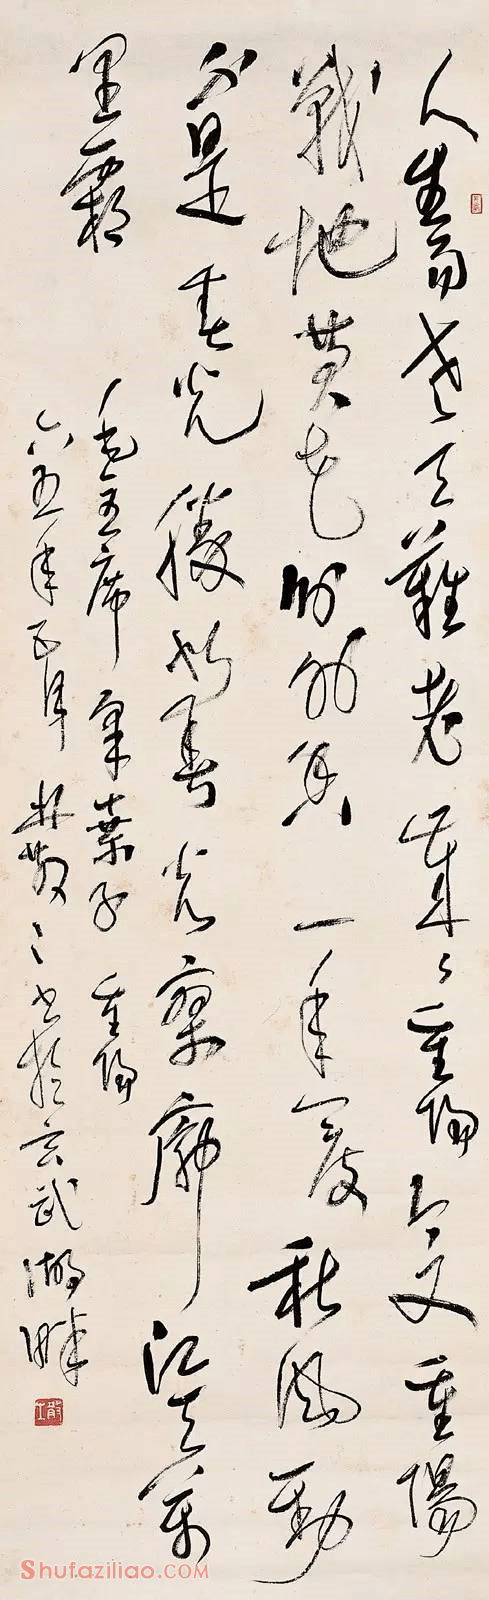 人生易老天難老歲々重陽今又重陽
戰地黄花分外香一年一度秋風勁
不是春光勝似春光寥廓江天萬
里霜
毛主席采桑子 重陽
六五年五月 林散之書於玄武湖畔
Shufaziliao.COM